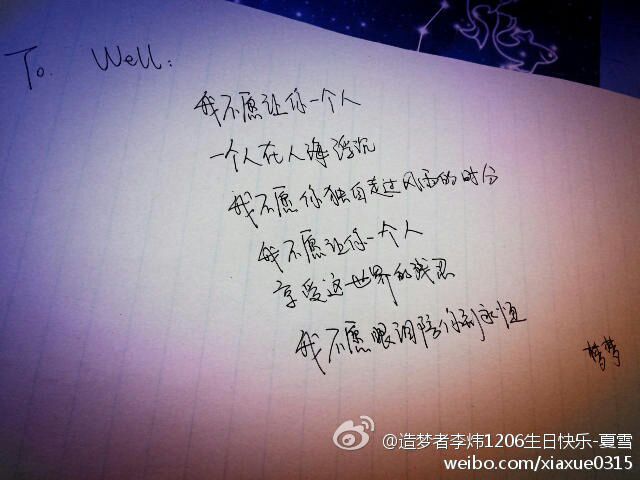 To. Well:
我不愿让你一个人
一个人在人海浮沉
我不愿你独自走过风雨的时分
我不愿让你一个人
享受这世界的残忍
我不愿眼泪陪你到永恒
梦梦
@造梦者李炜1206生日快乐-夏雪
weibo.com/xiaxue0315